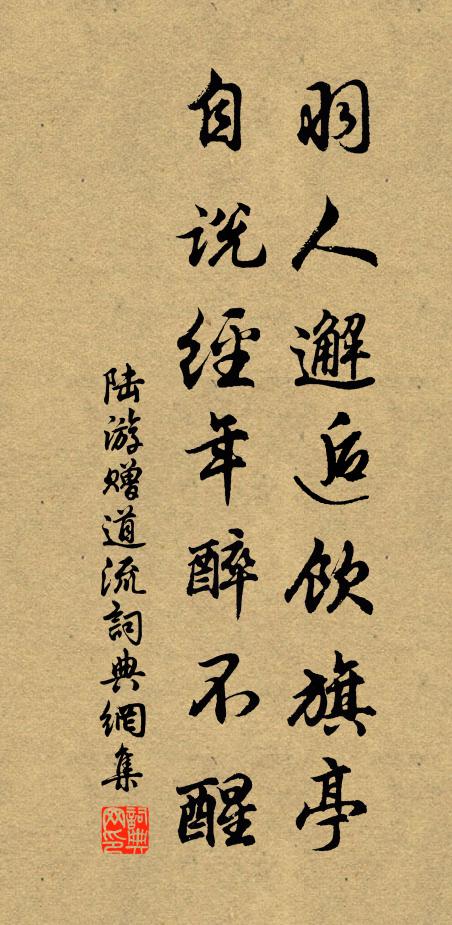 羽人邂逅飲旗亭
自説經年醉不醒
陆游赠道流詞典網集
詞典网印